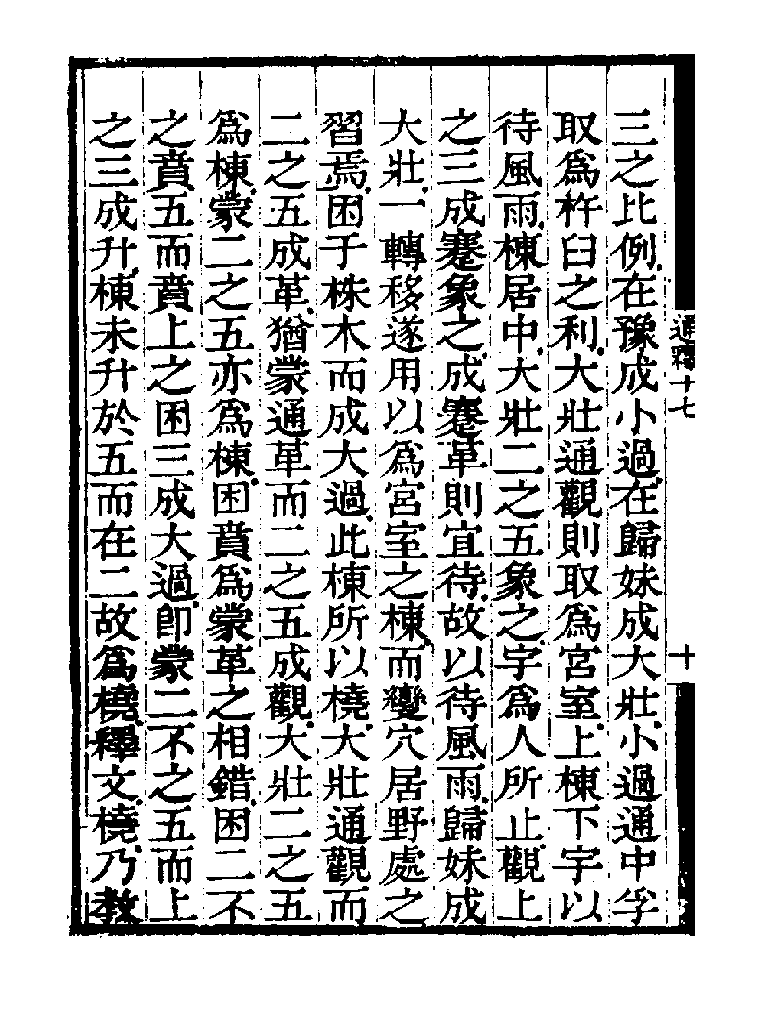 三之比例在豫成小過在歸妹成大壯小過通中孚
取爲杵臼之利大壯通觀則取爲宮室上棟下宇以
待風雨棟居中大壯二之五象之宇爲人所止觀上
之三成蹇象之成蹇革則宜待故以待風雨歸妹成
大壯一轉移遂用以爲宮室之棟而變穴居野處之
習焉困于株木而成大過此棟所以橈大壯通觀而
二之五成革猶蒙通革而二之五成觀大壯二之五
爲棟蒙二之五亦爲棟困賁爲蒙革之相錯困二不
之賁五而賁上之困三成大過卽蒙二不之五而上
之三成升棟未升於五而在二故爲橈釋文橈乃教
通釋十七
十